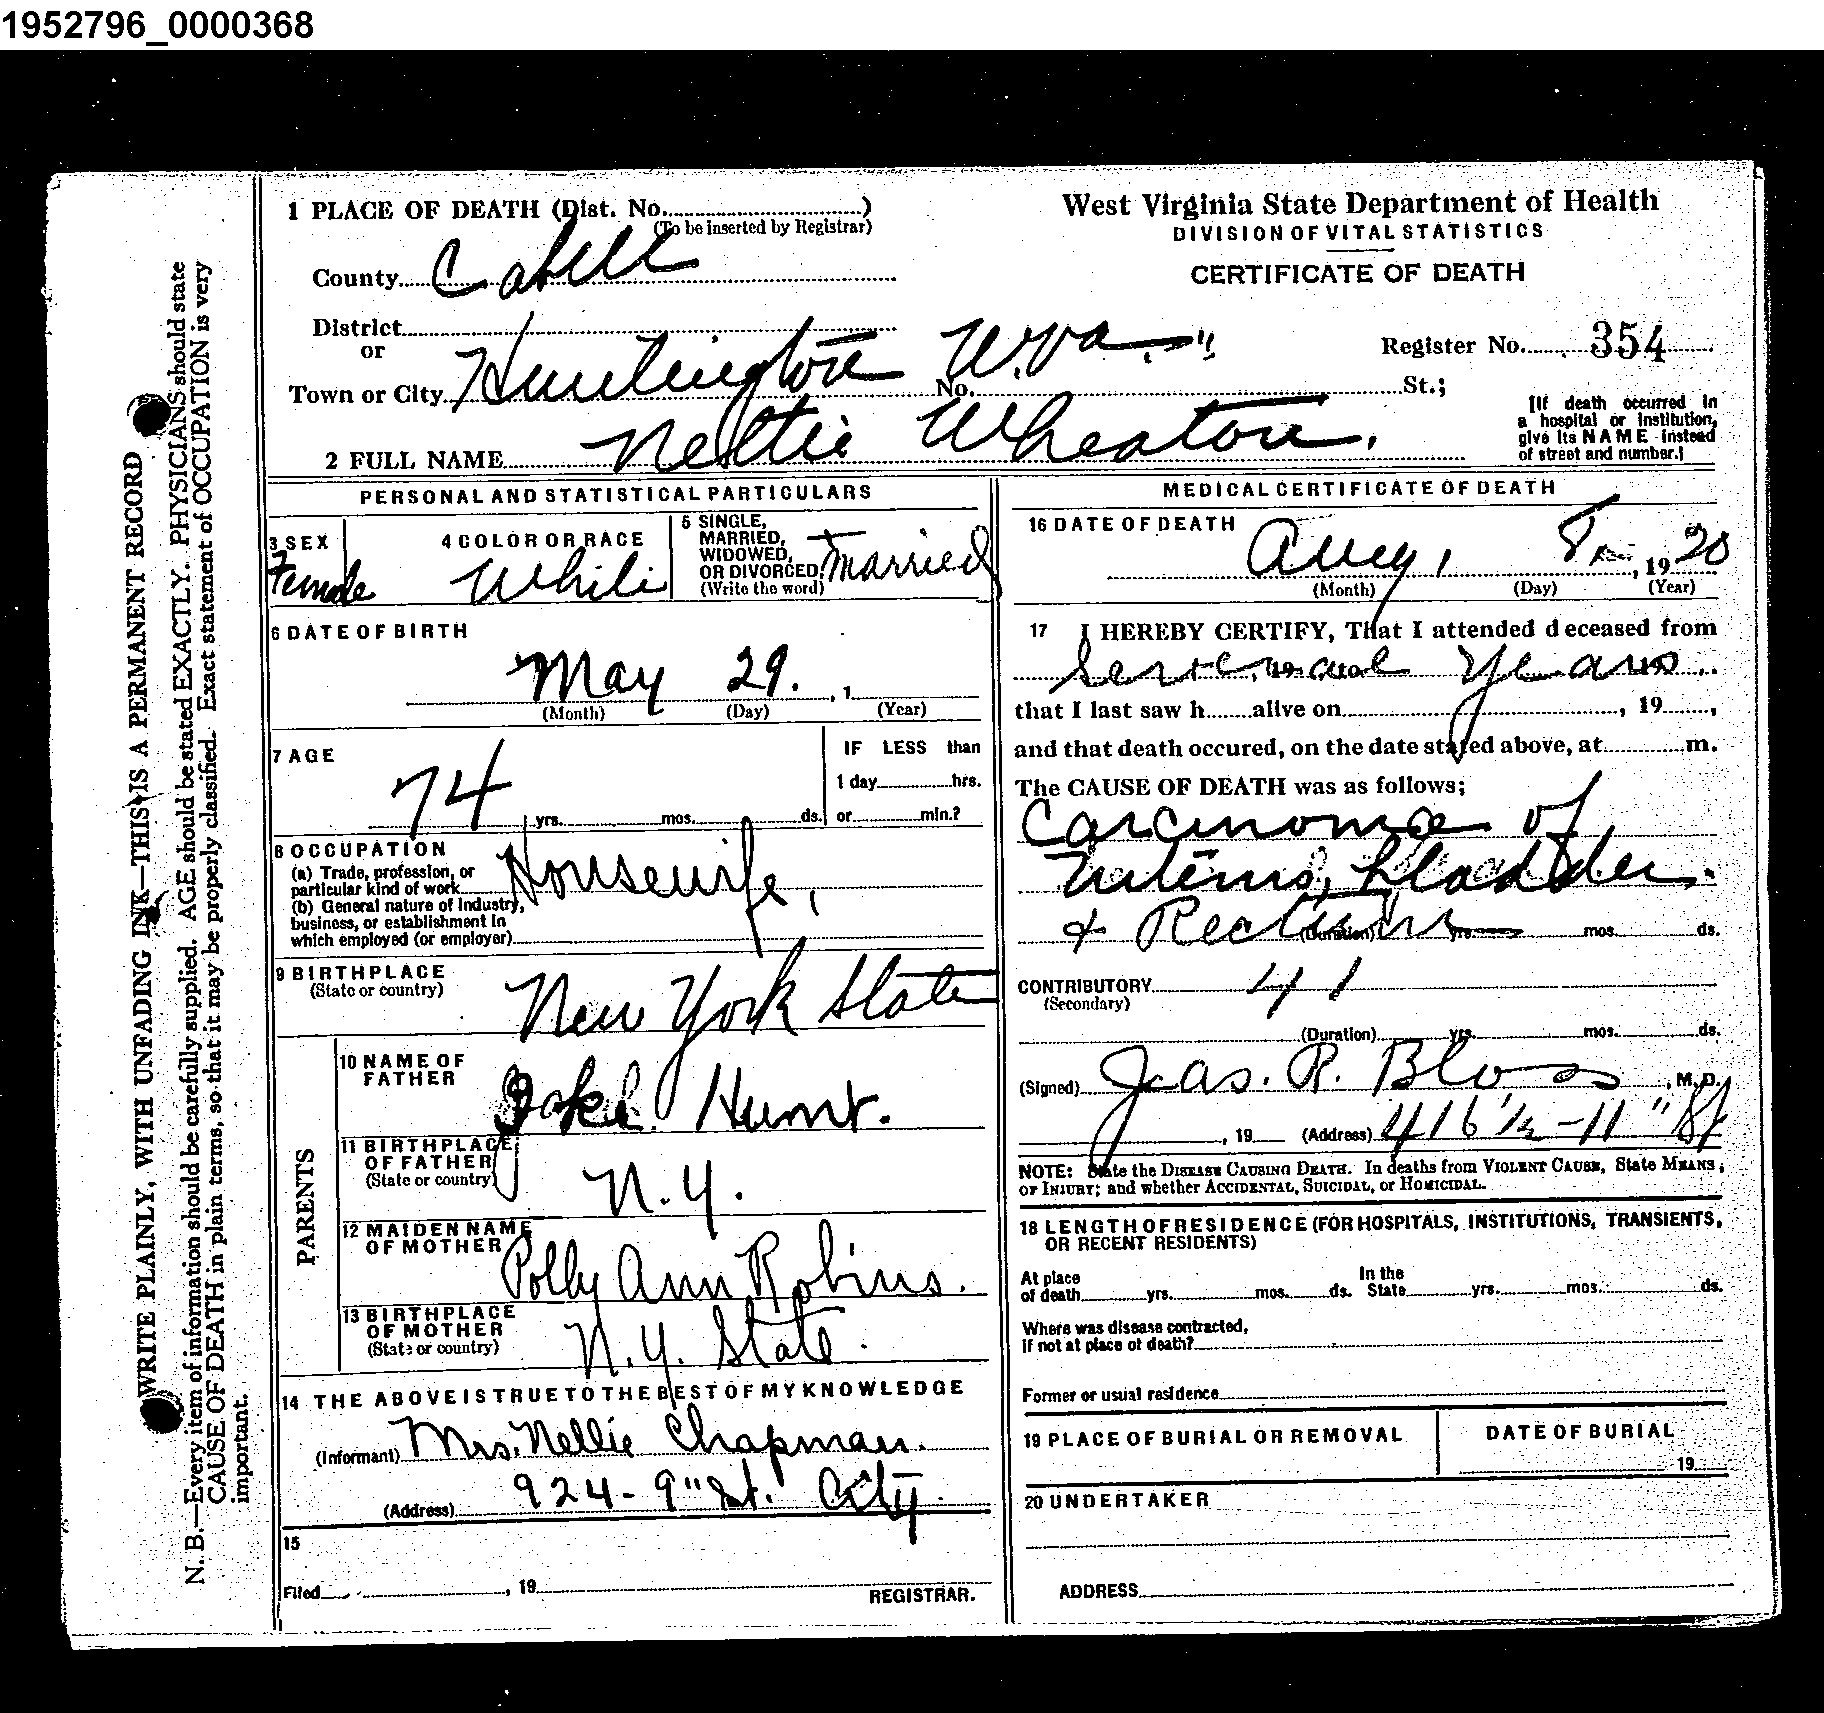 1952796_0000368
1 PLACE OF DEATH (Dist. No. )
(To be inserted by Registrar)
County Cabell
District
or
Town or City Huntington W.Va No. St.;
2 FULL NAME Nettie Wheaton.
West Virginia State Department of Health
DIVISION OF VITAL STATISTICS
CERTIFICATE OF DEATH
Register No. 354
[If death occurred in
a hospital or institution,
give its NAME instead
of street and number.]
PERSONAL AND STATISTICAL PARTICULARS
3 SEX
Female
4 COLOR OR RACE
White
5 SINGLE,
MARRIED,
WIDOWED,
OR DIVORCED,
(Write the word)
Married
6 DATE OF BIRTH
May 29. , 1
(Month) (Day) (Year)
7 AGE
74 yrs. mos. ds.
IF LESS than
1 day hrs.
or min.?
8 OCCUPATION
(a) Trade, profession, or
particular kind of work
Housewife,
(b) General nature of industry,
business, or establishment in
which employed (or employer)
9 BIRTHPLACE
(State or country)
New York State
PARENTS
10 NAME OF
FATHER
Hunt.
11 BIRTHPLACE
OF FATHER
(State or country)
N.Y.
12 MAIDEN NAME
OF MOTHER
Polly Ann Robins.
13 BIRTHPLACE
OF MOTHER
(State or country)
N.Y. State.
14 THE ABOVE IS TRUE TO THE BEST OF MY KNOWLEDGE
(Informant) Mrs. Nellie Chapman.
(Address) 924 - 9" St. City.
15
Filed , 19
REGISTRAR.
MEDICAL CERTIFICATE OF DEATH
16 DATE OF DEATH
Aug, 8 , 1920
(Month) (Day) (Year)
17 I HEREBY CERTIFY, That I attended deceased from
several years
that I last saw h alive on , 19 ,
and that death occured, on the date stated above, at m.
The CAUSE OF DEATH was as follows;
Carcinoma of
Uterus, bladder
& Rectum
(Duration) yrs. mos. ds.
CONTRIBUTORY 41
(Secondary)
(Duration) yrs. mos. ds.
(Signed) Jas. R. Bloss , M.D.
, 19 (Address) 416 1/2 - 11" St
NOTE: State the DISEASE CAUSING DEATH. In deaths from VIOLENT CAUSE, State MEANS,
OF INJURY; and whether ACCIDENTAL, SUICIDAL, or HOMICIDAL.
18 LENGTH OF RESIDENCE (FOR HOSPITALS, INSTITUTIONS, TRANSIENTS,
OR RECENT RESIDENTS)
At place
of death yrs. mos. ds.
In the
State yrs. mos. ds.
Where was disease contracted,
if not at place of death?
Former or usual residence
19 PLACE OF BURIAL OR REMOVAL
DATE OF BURIAL
19
20 UNDERTAKER
ADDRESS
WRITE PLAINLY, WITH UNFADING INK—THIS IS A PERMANENT RECORD
N. B.—Every item of information should be carefully supplied. AGE should be stated EXACTLY. PHYSICIANS should state
CAUSE OF DEATH in plain terms, so that it may be properly classified. Exact statement of OCCUPATION is very
important.